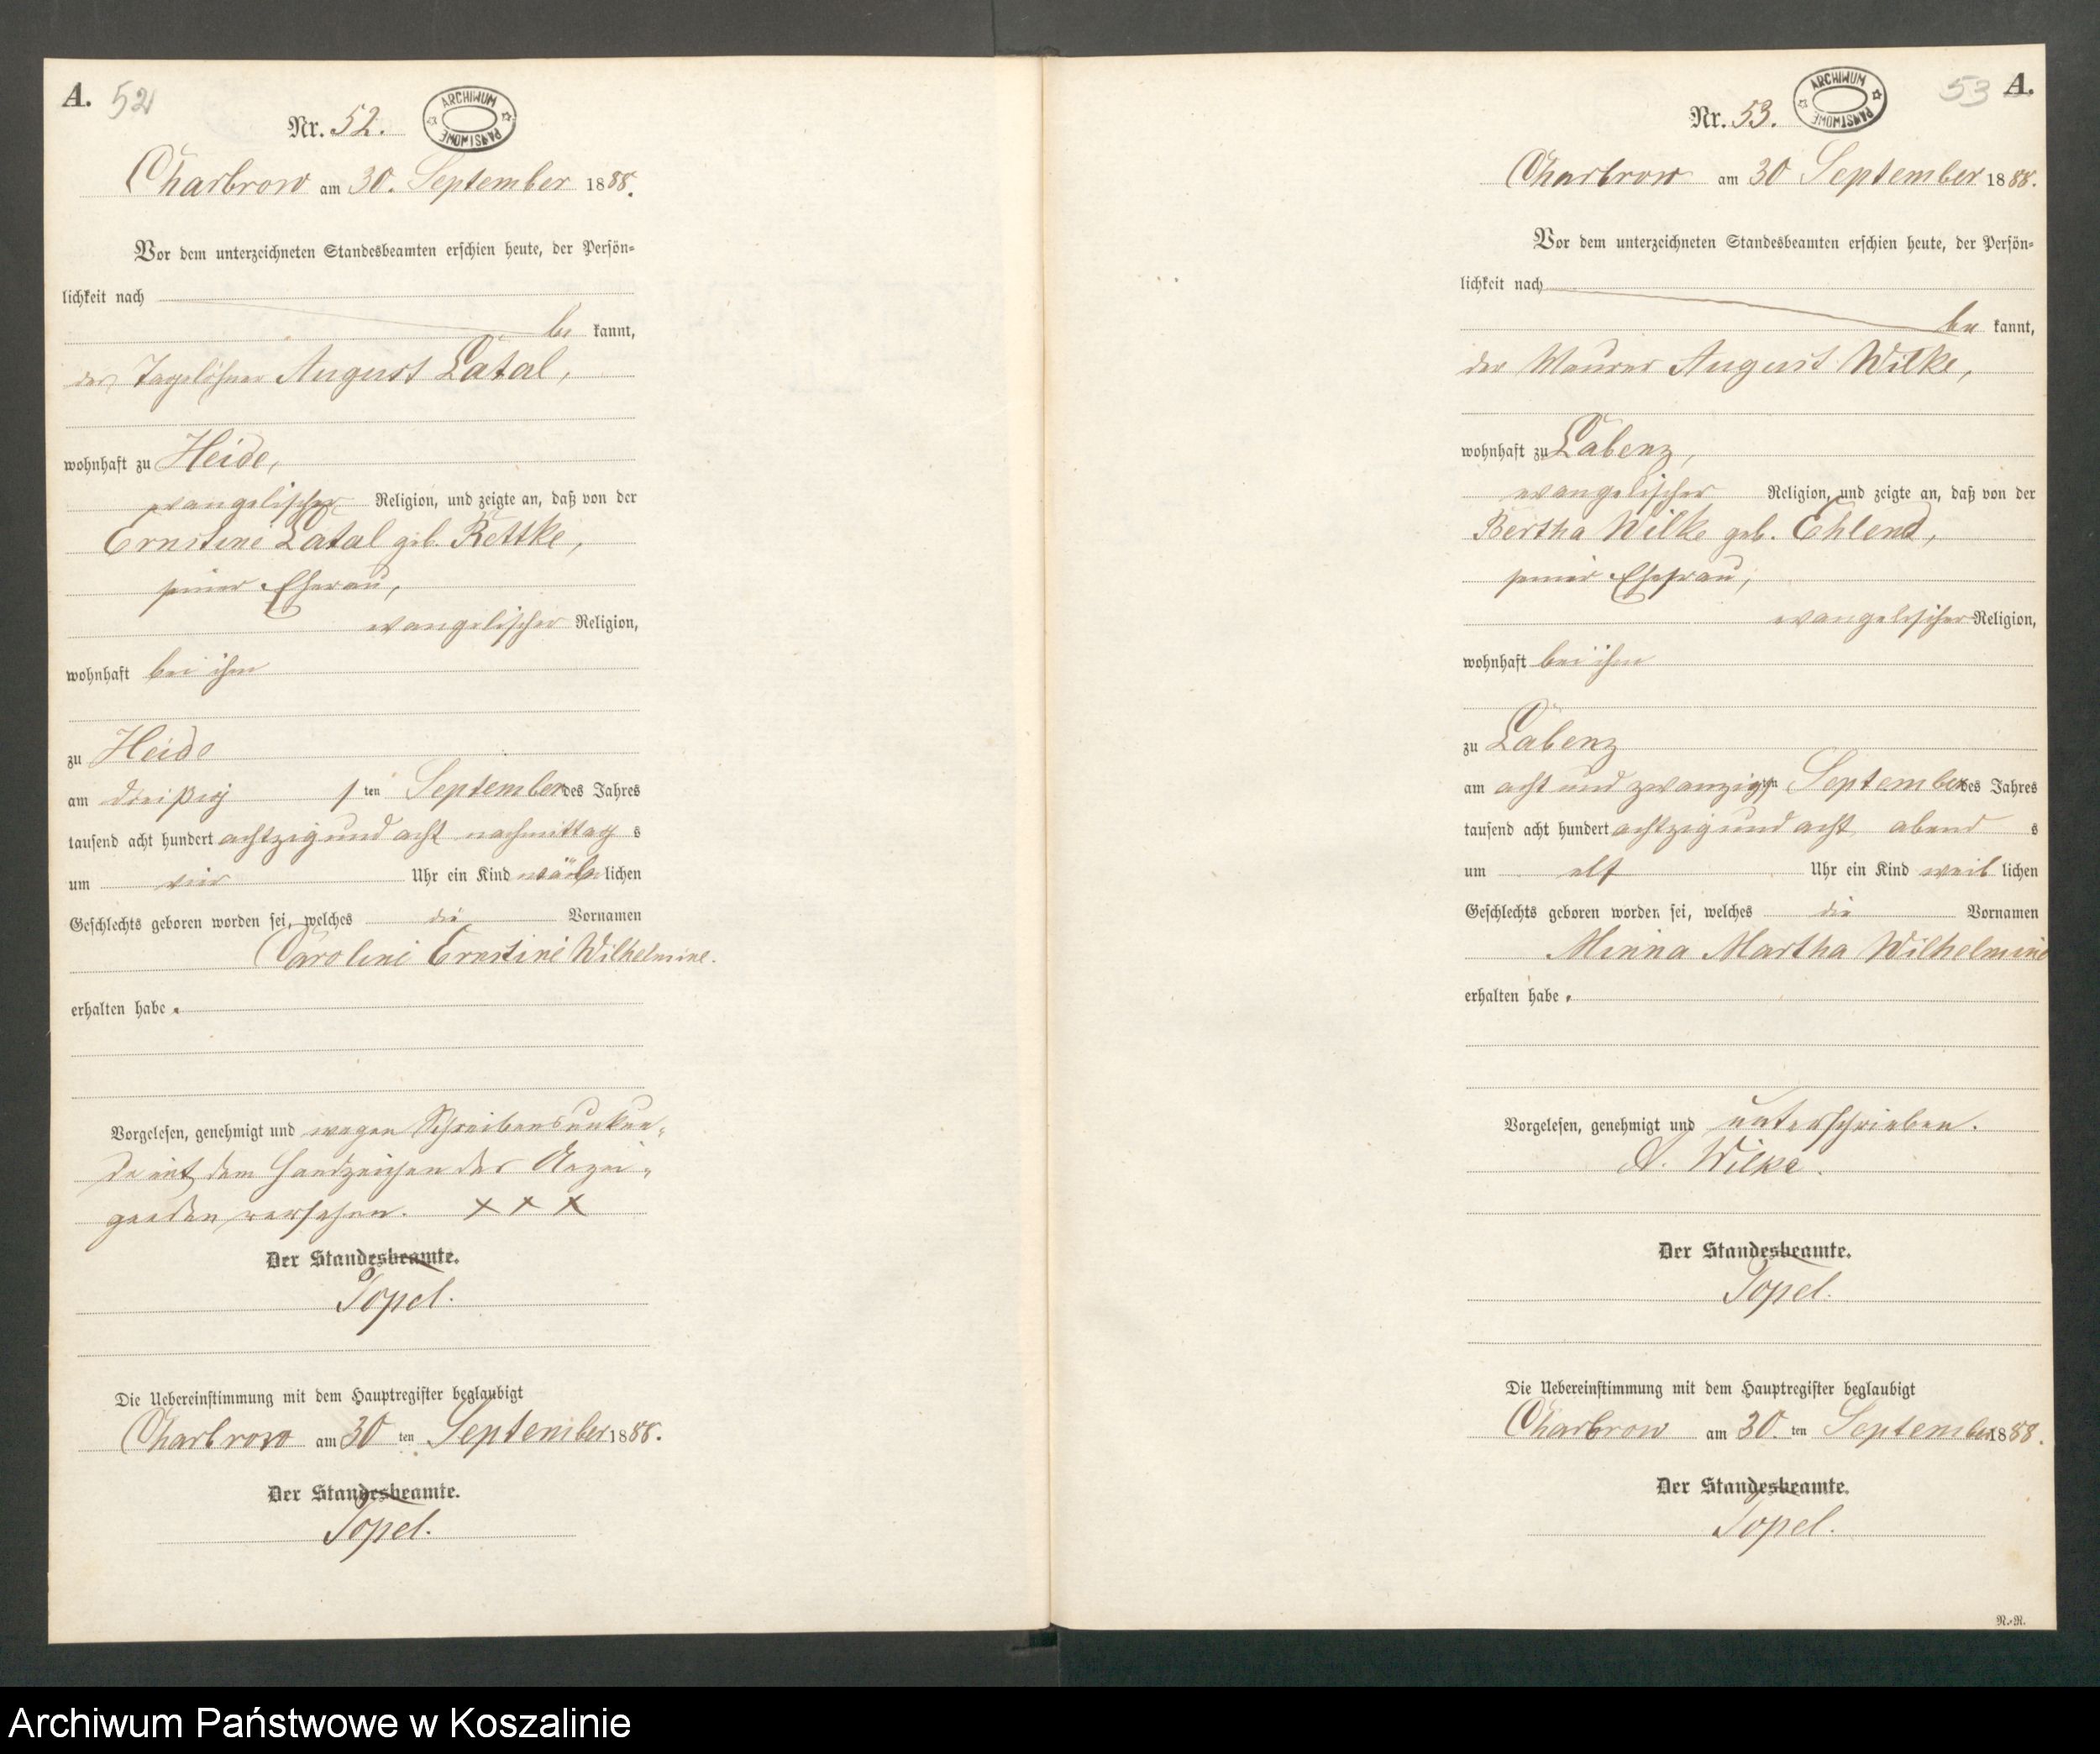 A. 52
Nr. 52.
ARCHIWUM PAŃSTWOWE
Charbrow am 30. September 1888.
Vor dem unterzeichneten Standesbeamten erschien heute, der Persön-
lichkeit nach
be kannt,
der Tagelöhner August Latal,
wohnhaft zu Heide,
evangelischer Religion, und zeigte an, daß von der
Ernstine Latal geb. Rettke,
seiner Eherau,
evangelischer Religion,
wohnhaft bei ihm
zu Heide
am dreißig ten September des Jahres
tausend acht hundert achtzig und acht nachmittag s
um vier Uhr ein Kind lichen
Geschlechts geboren worden sei, welches die Vornamen
Caroline Ernstine Wilhelmine.
erhalten habe.
Vorgelesen, genehmigt und wegen Schreibensunkun-
de mit dem Handzeichen des Anzei-
genden versehen. X X X
Der Standesbeamte.
Topel.
Die Uebereinstimmung mit dem Hauptregister beglaubigt
Charbrow am 30 ten September 1888.
Der Standesbeamte.
Topel.
53 A.
Nr. 53.
ARCHIWUM PAŃSTWOWE
Charbrow am 30 September 1888.
Vor dem unterzeichneten Standesbeamten erschien heute, der Persön-
lichkeit nach
be kannt,
der Maurer August Wilke,
wohnhaft zu Labenz,
evangelischer Religion, und zeigte an, daß von der
Bertha Wilke geb. Ehlend,
seiner Ehefrau,
evangelischer Religion,
wohnhaft bei ihm
zu Labenz
am acht und zwanzigsten September des Jahres
tausend acht hundert achtzig und acht abend s
um elf Uhr ein Kind weib lichen
Geschlechts geboren worden sei, welches die Vornamen
Minna Martha Wilhelmine
erhalten habe.
Vorgelesen, genehmigt und unterschrieben.
A. Wilke.
Der Standesbeamte.
Topel.
Die Uebereinstimmung mit dem Hauptregister beglaubigt
Charbrow am 30. ten September 1888.
Der Standesbeamte.
Topel.
N.-R.
Archiwum Państwowe w Koszalinie